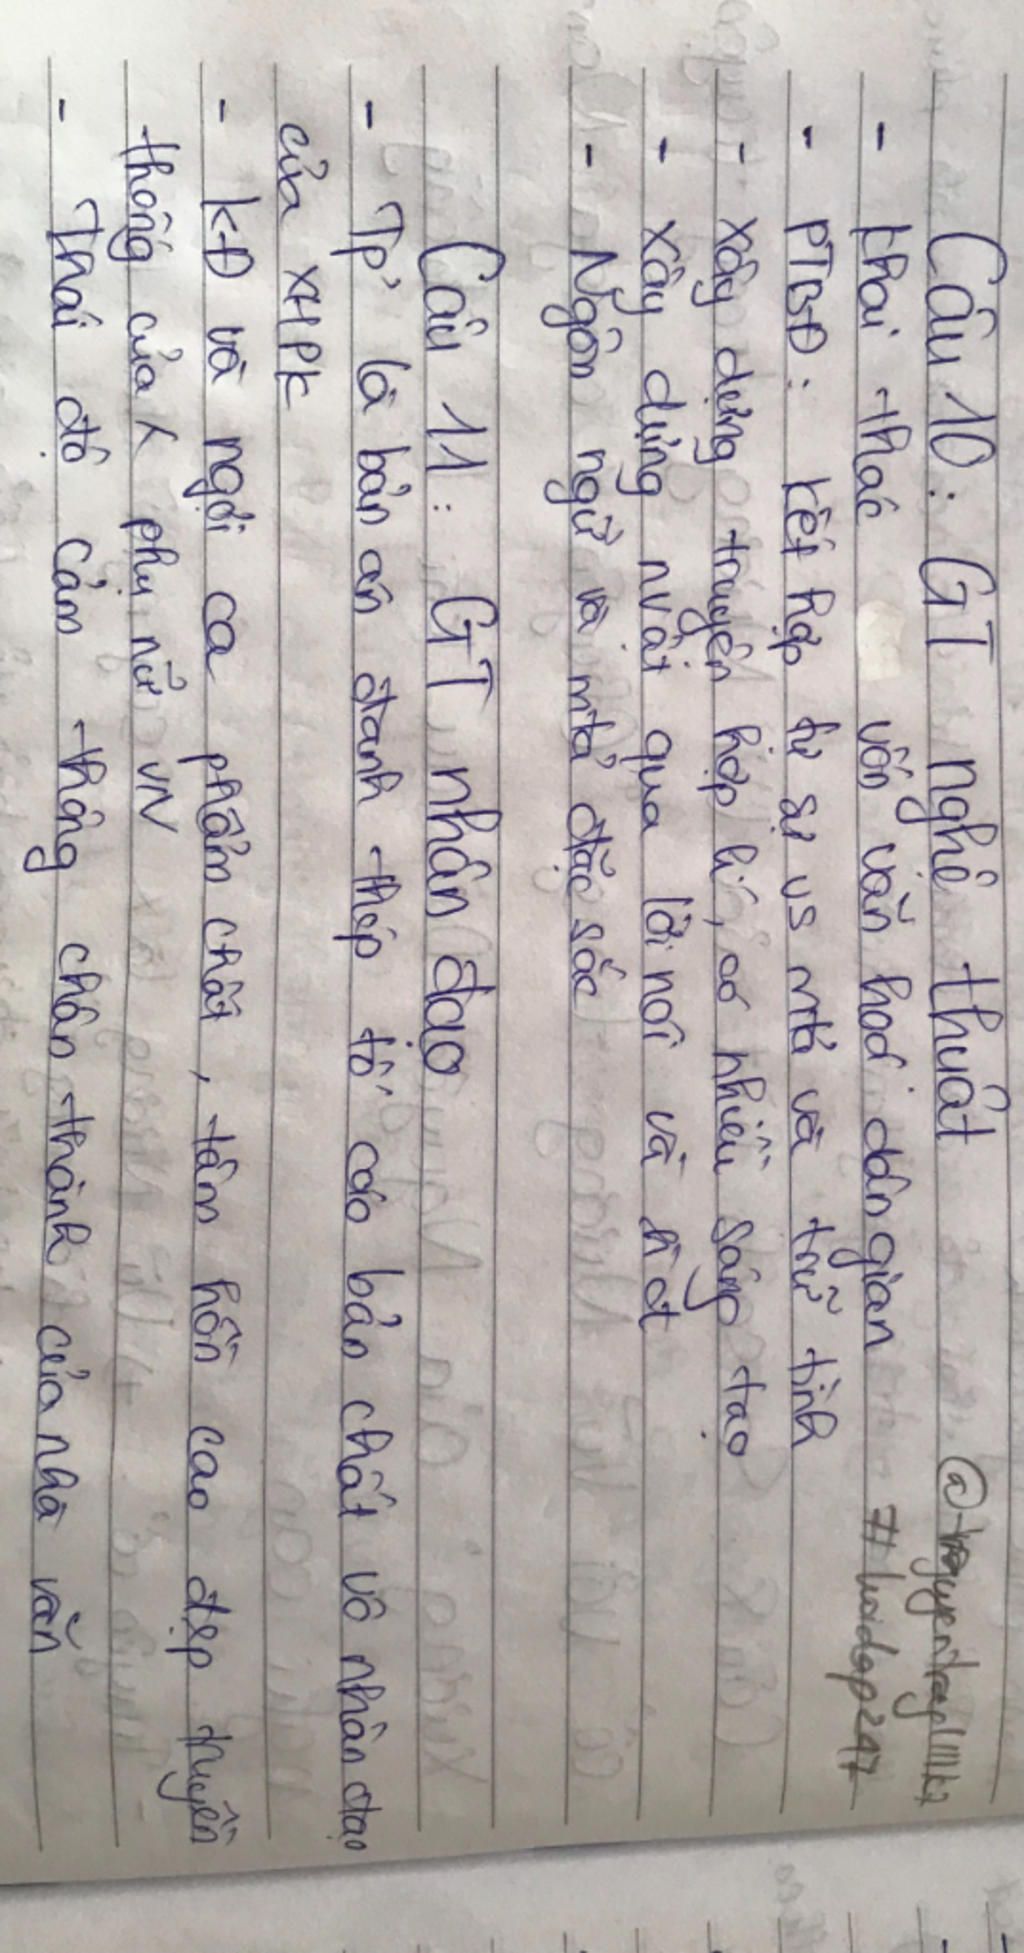 Câu 10: GT nghệ thuật
- khai thác vốn văn hoá dân gian
- PTBĐ: kết hợp tự sự vs mtả và trữ tình
- xây dựng truyện hợp lí, có nhiều sáng tạo
- xây dựng nvật qua lời nói và
- Ngôn ngữ và mtả đặc sắc
Câu 11: GT nhân đạo
- Tp' là bản án đanh thép tố cáo bản chất vô nhân đạo
của XHPK
- KĐ và ngợi ca phẩm chất, tâm hồn cao đẹp truyền
thống của phụ nữ VN
- Thái độ cảm thông chân thành của nhà văn
#hoidap247